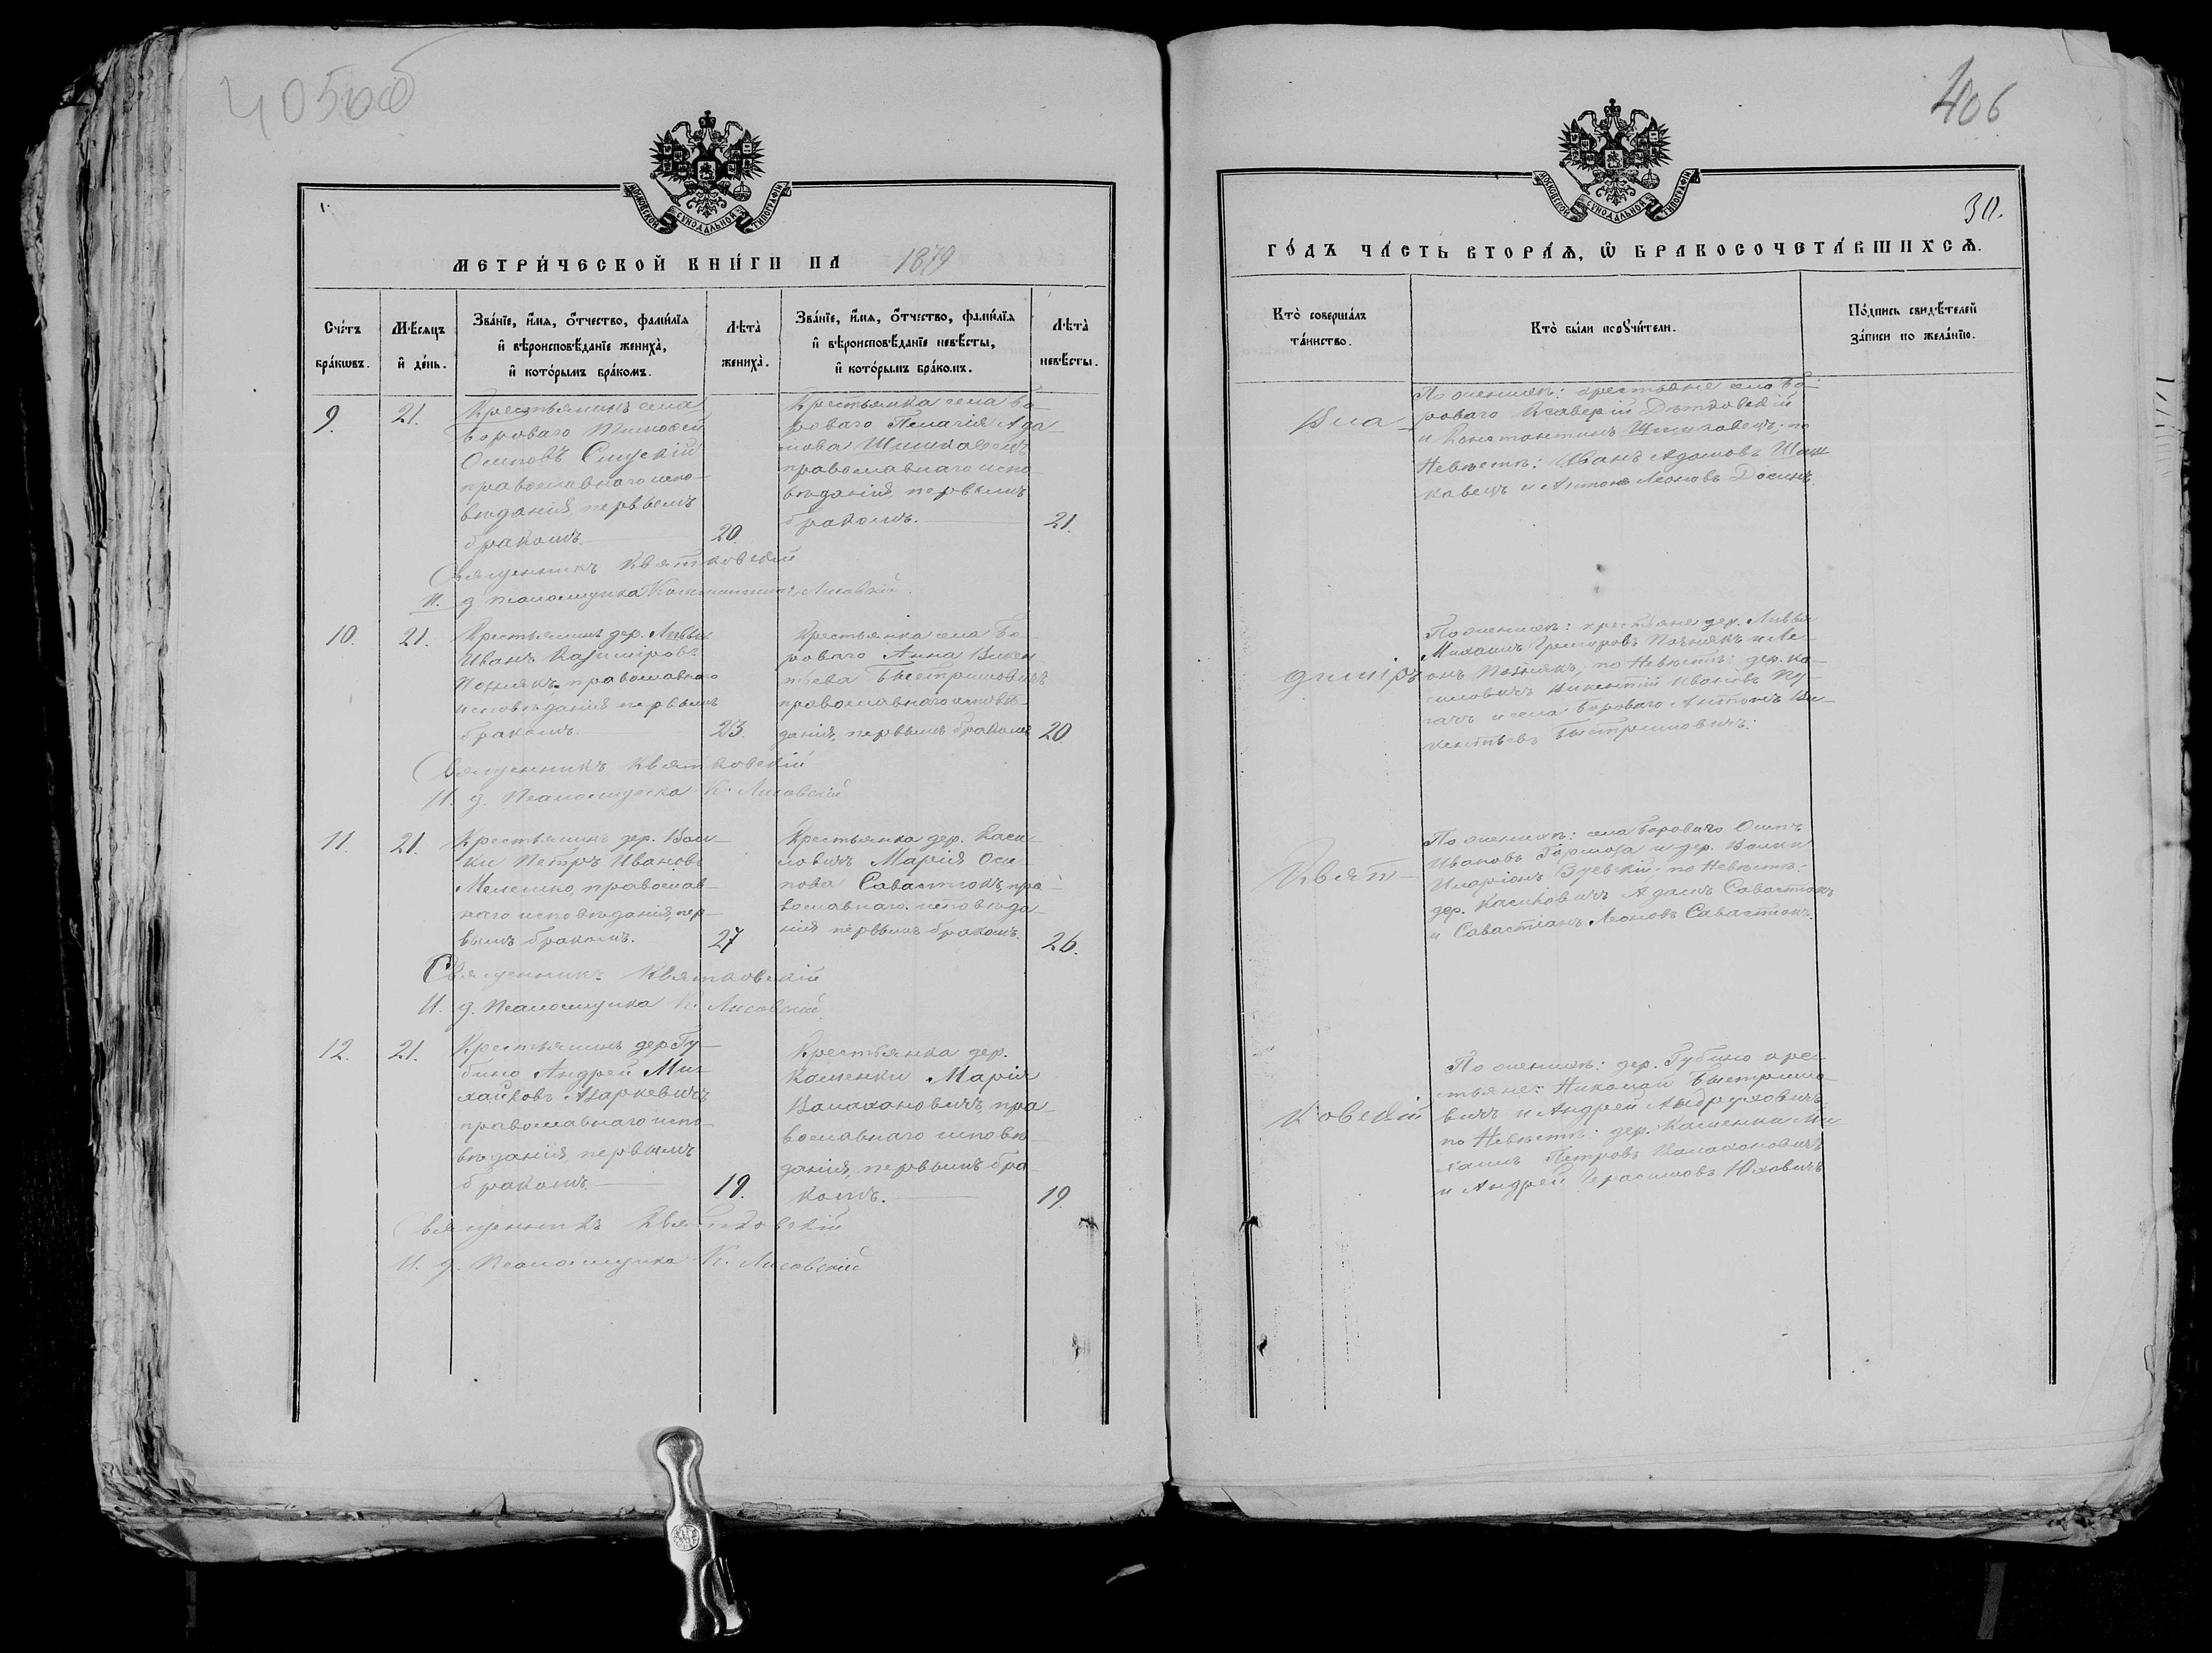 405 об
МОСКОВСКОЙ СѴНОДАЛЬНОЙ ТИПОГРАФІИ
МЕТРИ́ЧЕСКОЙ КНИ́ГИ НА 1879
Сче́тъ бра́кωвъ.
Мѣ́сяцъ и҆ де́нь.
Зва́нїе, и҆́мѧ, ѻ҆́тчество, фами́лїѧ
и҆ вѣроисповѣ́данїе жениха̀,
и҆ кото́рымъ бра́комъ.
Лѣта̀ жениха̀.
Зва́нїе, и҆́мѧ, ѻ҆́тчество, фами́лїѧ
и҆ вѣроисповѣ́данїе невѣ́сты,
и҆ кото́рымъ бра́комъ.
Лѣта̀ невѣ́сты.
9.
21.
Крестьянинъ села
Бороваго Тимофей
Осиповъ
православнаго испо-
вѣданія, первымъ
бракомъ.
20.
Крестьянка села Бо-
роваго Пелагія Ада
мова Шишкавецъ
православнаго испо-
вѣданія, первымъ
бракомъ.
21.
Священникъ Квятковскій
И. д. псаломщика Константинъ Лисовскій.
10.
21.
Крестьянинъ дер. Ливьи
Иванъ Казиміровъ
Познякъ, православнаго
исповѣданія первымъ
бракомъ.
23.
Крестьянка села Бо-
роваго Анна Викен-
тьева Быстримовичъ
православнаго исповѣ-
данія, первымъ бракомъ
20.
Священникъ Квятковскій
И. д. Псаломщика К. Лисовскій
11.
21.
Крестьянинъ дер. Вол-
ки Петръ Ивановъ
Мелешко, православ-
наго исповѣданія, пер-
вымъ бракомъ.
27
Крестьянка дер. Каси-
ловичъ Марія Оси-
пова Савастюкъ, пра-
вославнаго исповѣда-
нія первымъ бракомъ.
26.
Священникъ Квятковскій
И. д. Псаломщика К. Лисовскій.
12.
21.
Крестьянинъ дер. Гу-
бино Андрей Ми-
хайловъ Азаркевичъ
православнаго испо-
вѣданія, первымъ
бракомъ.
19.
Крестьянка дер.
Каменки Марія
Валахановичъ, пра-
вославнаго исповѣ-
данія, первымъ бра-
комъ.
19.
Священникъ Квятковскій
И. д. Псаломщика К. Лисовскій
406
30.
МОСКОВСКОЙ СѴНОДАЛЬНОЙ ТИПОГРАФІИ
ГО́ДЪ ЧА́СТЬ ВТОРА́Ѧ, Ѡ҆ БРАКОСОЧЕТА́ВШИХСѦ.
Кто̀ соверша́лъ та́инство.
Кто̀ бы́ли порꙋчи́тели.
По́дпись свидѣ́телей за́писи по жела́нїю.
Вла-
димiръ
Квят-
ковскій
По женихѣ: крестьяне села Бо-
роваго Ксаверій
и Константинъ Шишкавецъ; по
Невѣстѣ: Иванъ Адамовъ Шиш
кавецъ и Антонъ Леоновъ
По женихѣ: крестьяне дер. Ливьи
Михаилъ Григоровъ Познякъ и Ле-
онъ Познякъ; по Невѣстѣ: дер. Ка-
силовичъ Викентій Ивановъ
и села Бороваго Антонъ Ви-
кентьевъ Быстримовичъ.
По женихѣ: села Бороваго Осипъ
Ивановъ и дер. Волки
Иларіонъ Зуевскій; по Невѣстѣ:
дер. Касиловичъ Адамъ Савастюкъ
и Савастіанъ Леоновъ Савастюкъ.
По женихѣ: дер. Губино кре-
стьяне: Николай Быстримо-
вичъ и Андрей Андруховичъ,
по Невѣстѣ: дер. Каменки Ми
хаилъ Петровъ Валахановичъ
и Андрей Герасимовъ Юховичъ